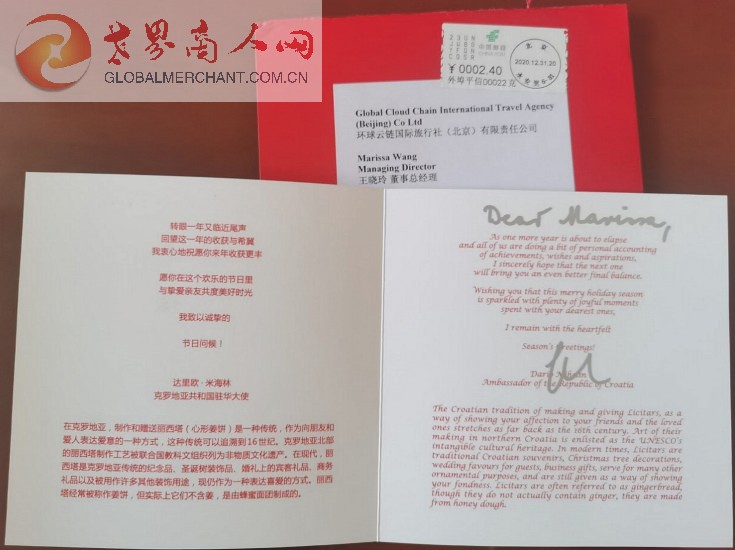 世界商人网
GLOBALMERCHANT.COM.CN
中国邮政
CHINA POST
¥ 0002.40
外埠平信00022克
2020.12.31.20
Global Cloud Chain International Travel Agency
(Beijing) Co Ltd
环球云链国际旅行社（北京）有限责任公司
Marissa Wang
Managing Director
王晓玲 董事总经理
转眼一年又临近尾声
回望这一年的收获与希冀
我衷心地祝愿你来年收获更丰
愿你在这个欢乐的节日里
与挚爱亲友共度美好时光
我致以诚挚的
节日问候！
达里欧·米海林
克罗地亚共和国驻华大使
在克罗地亚，制作和赠送丽西塔（心形姜饼）是一种传统，作为向朋友和
爱人表达爱意的一种方式，这种传统可以追溯到16世纪。克罗地亚北部
的丽西塔制作工艺被联合国教科文组织列为非物质文化遗产。在现代，丽
西塔是克罗地亚传统的纪念品、圣诞树装饰品、婚礼上的宾客礼品、商务
礼品以及被用作许多其他装饰用途，现仍作为一种表达喜爱的方式。丽西
塔经常被称作姜饼，但实际上它们不含姜，是由蜂蜜面团制成的。
Dear Marissa,
As one more year is about to elapse
and all of us are doing a bit of personal accounting
of achievements, wishes and aspirations,
I sincerely hope that the next one
will bring you an even better final balance.
Wishing you that this merry holiday season
is sparkled with plenty of joyful moments
spent with your dearest ones,
I remain with the heartfelt
Season's Greetings!
Dario Mihelin
Ambassador of the Republic of Croatia
The Croatian tradition of making and giving Licitars, as a
way of showing your affection to your friends and the loved
ones stretches as far back as the 16th century. Art of their
making in northern Croatia is enlisted as the UNESCO's
intangible cultural heritage. In modern times, Licitars are
traditional Croatian souvenirs, Christmas tree decorations,
wedding favours for guests, business gifts, serve for many other
ornamental purposes, and are still given as a way of showing
your fondness. Licitars are often referred to as gingerbread,
though they do not actually contain ginger, they are made
from honey dough.